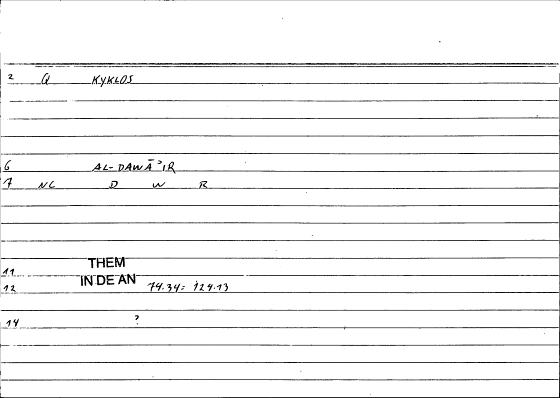 2 Q KYKLOS
6 AL-DAWĀʾIR
7 NC D W R
11 THEM
12 IN DE AN 74.34= 124.13
14 ?